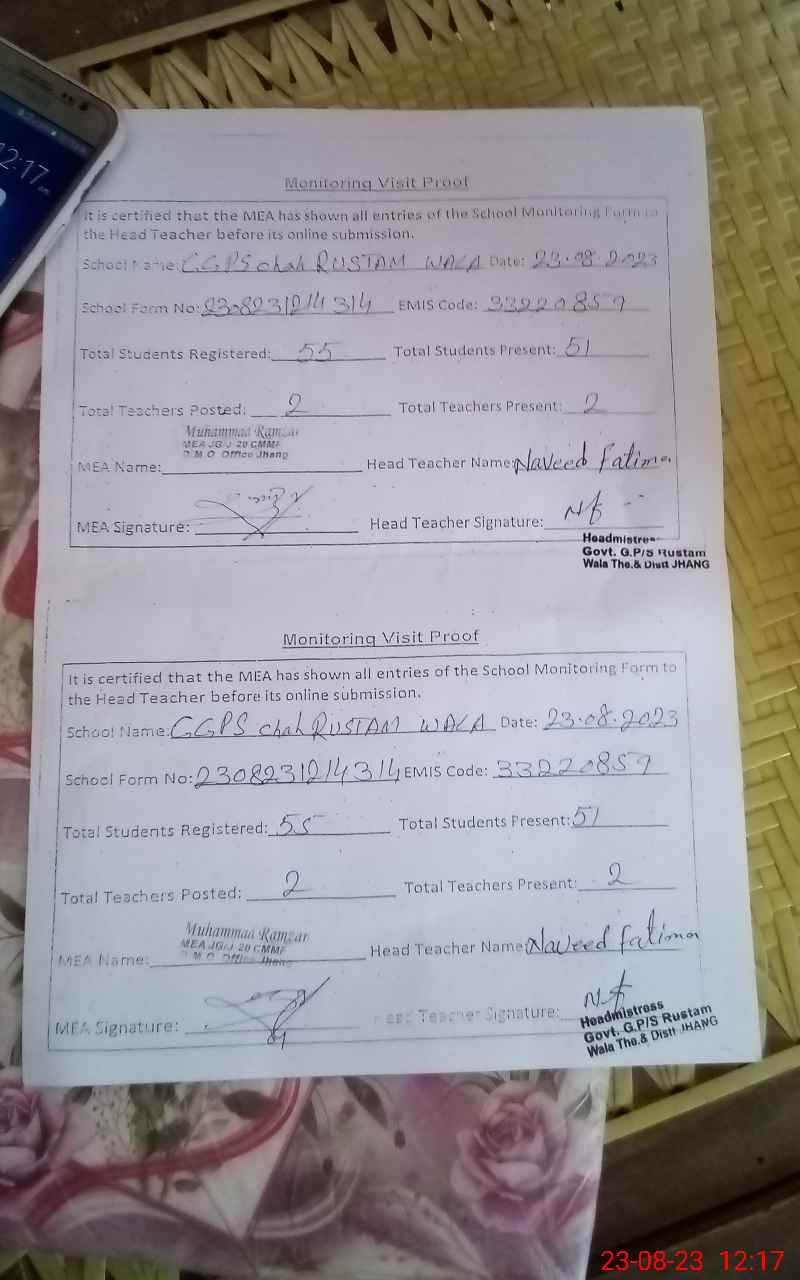 12:17
Monitoring Visit Proof
It is certified that the MEA has shown all entries of the School Monitoring Form to
the Head Teacher before its online submission.
School Name: GGPS chah RUSTAM WALA Date: 23.08.2023
School Form No: 2308231214314 EMIS Code: 33220859
Total Students Registered: 55 Total Students Present: 51
Total Teachers Posted: 2 Total Teachers Present: 2
Muhammad Ramzan
MEA JG/J-20 CMMF
D.M.O. Office Jhang
MEA Name: Head Teacher Name: Naveed Fatima
MEA Signature: Head Teacher Signature: Nf
Headmistress
Govt. G.P/S Rustam
Wala The.& Distt JHANG
Monitoring Visit Proof
It is certified that the MEA has shown all entries of the School Monitoring Form to
the Head Teacher before its online submission.
School Name: GGPS chah RUSTAM WALA Date: 23.08.2023
School Form No: 2308231214314 EMIS Code: 33220859
Total Students Registered: 55 Total Students Present: 51
Total Teachers Posted: 2 Total Teachers Present: 2
Muhammad Ramzan
MEA JG/J-20 CMMF
D.M.O. Office Jhang
MEA Name: Head Teacher Name: Naveed Fatima
MEA Signature: Head Teacher Signature: Nf
Headmistress
Govt. G.P/S Rustam
Wala The.& Distt JHANG
23-08-23 12:17